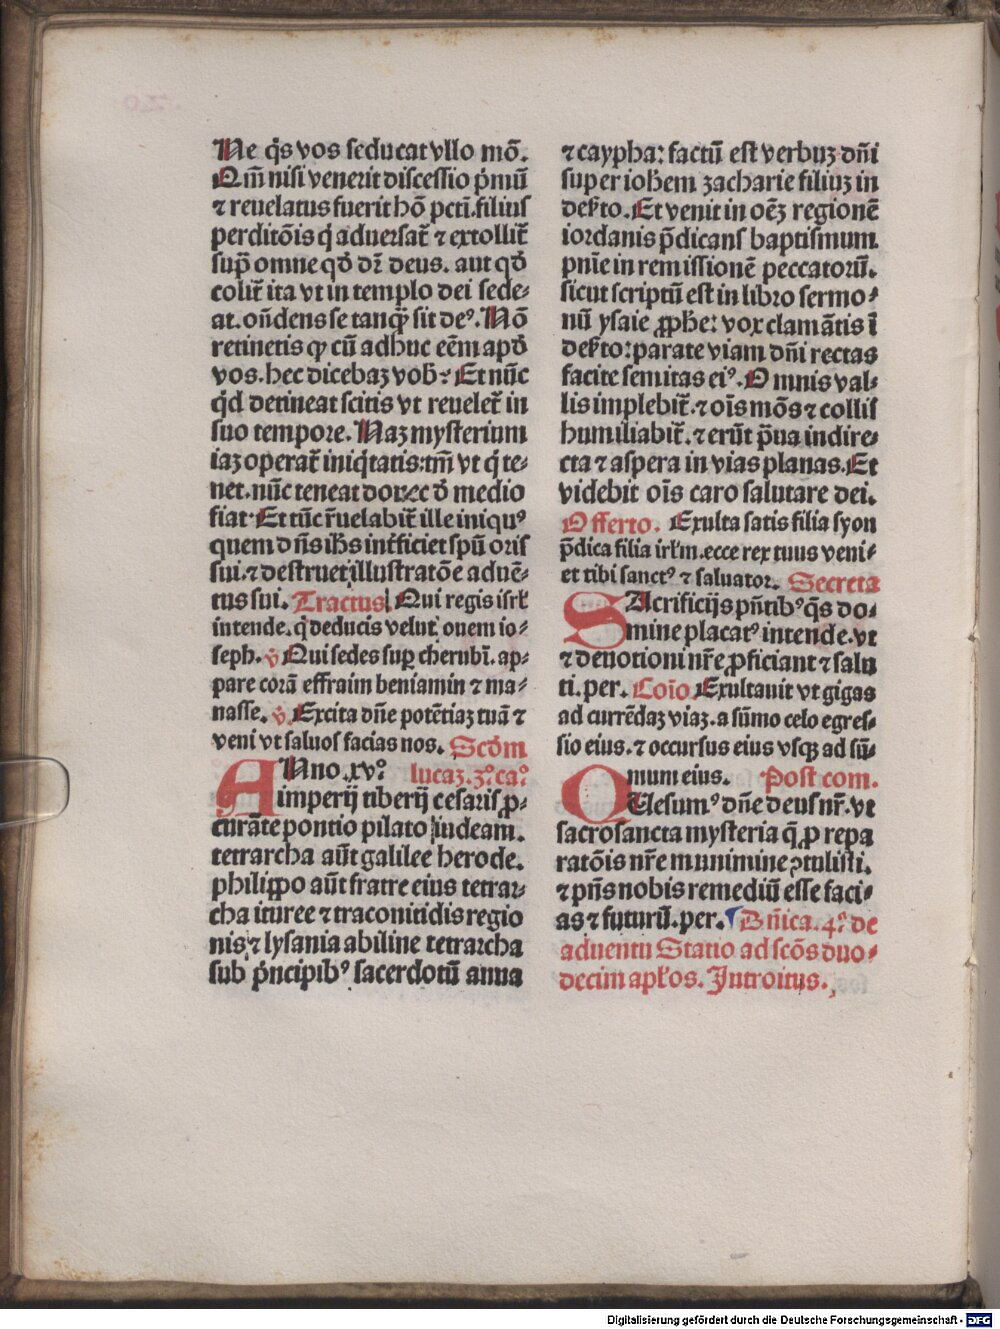 Ne q̄s vos seducat vllo mō.
Qm̄ nisi venerit discessio p̄mū
⁊ reuelatus fuerit hō pctī. filius
perditōis q̇ aduersat̄ ⁊ extollit̄
sup̄ omne qd̄ dr̄ deus. aut qd̄
colit̄ ita vt in templo dei sede⸗
at. oñdens se tanqȝ sit deꝰ. Nō
retinetis qꝫ cū adhuc eēm apd̄
vos. hec dicebaz vob̄? Et nūc
qd̄ detineat scitis vt reuelet̄ in
suo tempore. Naz mysterium
iaz operat̄ iniq̇tatis: tm̄ vt q̇ te⸗
net. nūc teneat donec d̄ medio
fiat. Et tūc r̄uelabit̄ ille iniquꝰ
quem dn̄s ih̄s int̄ficiet spū oris
sui. ⁊ destruet illustratōe aduē⸗
tus sui. Tractus Qui regis isrł
intende. q̇ deducis velut ouem io⸗
seph. v̄ Qui sedes sup̄ cherubī. ap⸗
pare corā effraim beniamin ⁊ ma⸗
nasse. v̄. Excita dn̄e potētiaz tuā ⁊
veni vt saluos facias nos. Scd̄m
ANno .xvꝰ. lucaz. 3ꝰ. caꝰ
imperij tiberij cesaris ꝓ⸗
curāte pontio pilato iudeam.
tetrarcha aūt galilee herode.
philippo aūt fratre eius tetrar⸗
cha ituree ⁊ traconitidis regio
nis ⁊ lysania abiline tetrarcha
sub p̄ncipibꝰ sacerdotū anna
⁊ caypha: factū est verbuz dn̄i
super ioh̄em zacharie filiuz in
deẜto. Et venit in oēz regionē
iordanis p̄dicans baptismum
pn̄ie in remissionē peccatorū.
sicut scriptū est in libro sermo⸗
nū ysaie ꝓph̄e: vox clamātis ī
deẜto: parate viam dn̄i rectas
facite semitas eiꝰ. Omnis val⸗
lis implebit̄. ⁊ oīs mōs ⁊ collis
humiliabit̄. ⁊ erūt p̄ua in dire⸗
cta ⁊ aspera in vias planas. Et
videbit oīs caro salutare dei.
Offerto. Exulta satis filia syon
p̄dica filia irłm. ecce rex tuus veni⸗
et tibi sanctꝰ ⁊ saluator. Secreta
SAcrificijs pn̄tibꝰ q̄s do⸗
mine placatꝰ intende. vt
⁊ deuotioni nr̄e ꝓficiant ⁊ salu
ti. per. Coīo. Exultauit vt gigas
ad currēdaz viaz. a sūmo celo egres⸗
sio eius. ⁊ occursus eius vsqȝ ad sū⸗
mum eius. Post com.
QUesumꝰ dn̄e deus nr̄. vt
sacrosancta mysteria q̄ ꝓ repa
ratōis nr̄e munimine ꝯtulisti.
⁊ pn̄s nobis remediū esse faci⸗
as ⁊ futurū. per. Dn̄ica. 4ᵃ. de
aduentu Statio ad scōs duo⸗
decim apłos. Introitus.
Digitalisierung gefördert durch die Deutsche Forschungsgemeinschaft - DFG